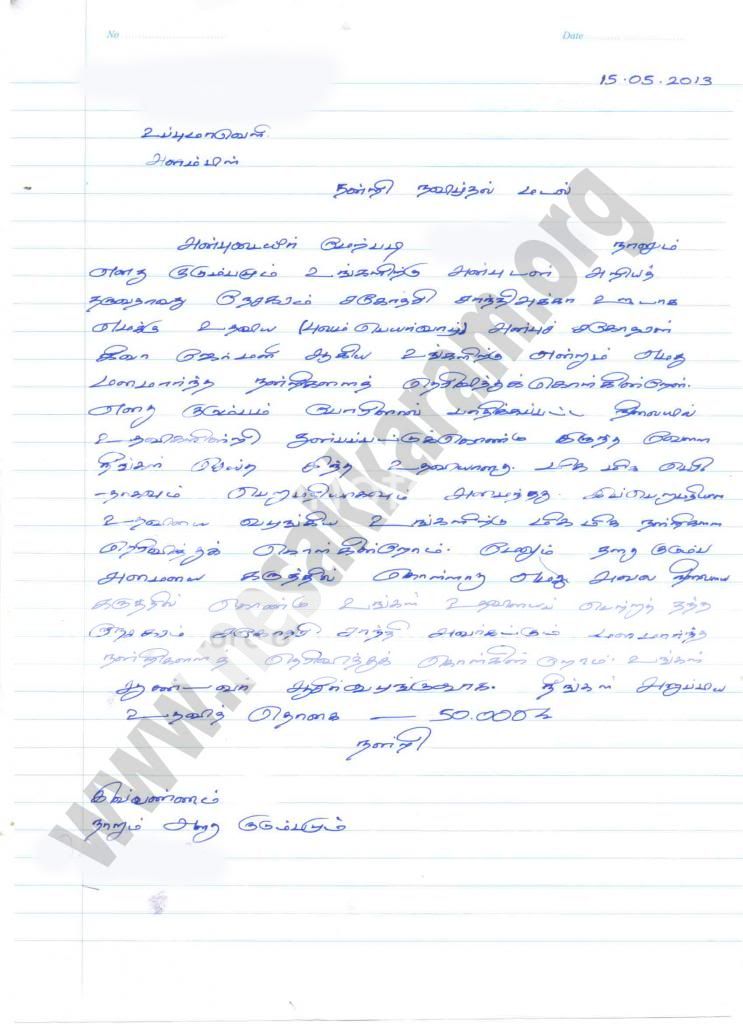 No
Date
15.05.2013
உப்புமாவெளி
அளம்பில்
நன்றி நவிழ்தல் மடல்
அன்புடையீர் மேற்படி நானும்
எனது குடும்பமும் உங்களிற்கு அன்புடன் அறியத்
தருவதாவது நேசகரம் சகோதரி சாந்தி அக்கா ஊடாக
எமக்கு உதவிய (புலம்பெயர்வாழ்) அன்புச் சகோதரன்
சிவா ஜேர்மனி ஆகிய உங்களிற்கு என்றும் எமது
மனமார்ந்த நன்றிகளைத் தெரிவித்துக் கொள்கின்றேன்.
எனது குடும்பம் போரினால் பாதிக்கப்பட்ட நிலையில்
உதவிகளின்றி துன்பப்பட்டுக்கொண்டு இருந்த வேளை
நீங்கள் செய்த இந்த உதவியானது மிக மிக பெரி
-தாகவும் பெறுமதியாகவும் அமைந்தது. இப்பெறுமதியான
உதவியை வழங்கிய உங்களிற்கு மிக மிக நன்றிகளை
தெரிவித்துக் கொள்கின்றோம். மேலும் தனது குடும்ப
அமைமையை கருத்தில் கொள்ளாது எமது அவல நிலையை
கருத்தில் கொண்டு உங்கள் உதவியைப் பெற்றுத் தந்த
நேசகரம் சகோதரி சாந்தி அவர்கட்கும் மனமார்ந்த
நன்றிகளைத் தெரிவித்துக் கொள்கின்றோம். உங்கள்
ஆண்டவர் ஆசிர்வழங்குவாராக. நீங்கள் அனுப்பிய
உதவித் தொகை — 50.000
நன்றி
இவ்வண்ணம்
நானும் எனது குடும்பமும்
www.nesakkaram.org